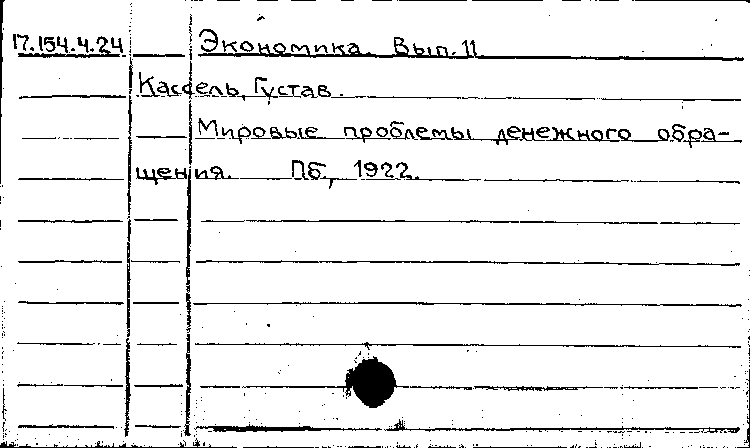 17.154.4.24 Экономика. Вып. 11
Кассель, Густав.
Мировые проблемы денежного обра-
щения. Пб., 1922.